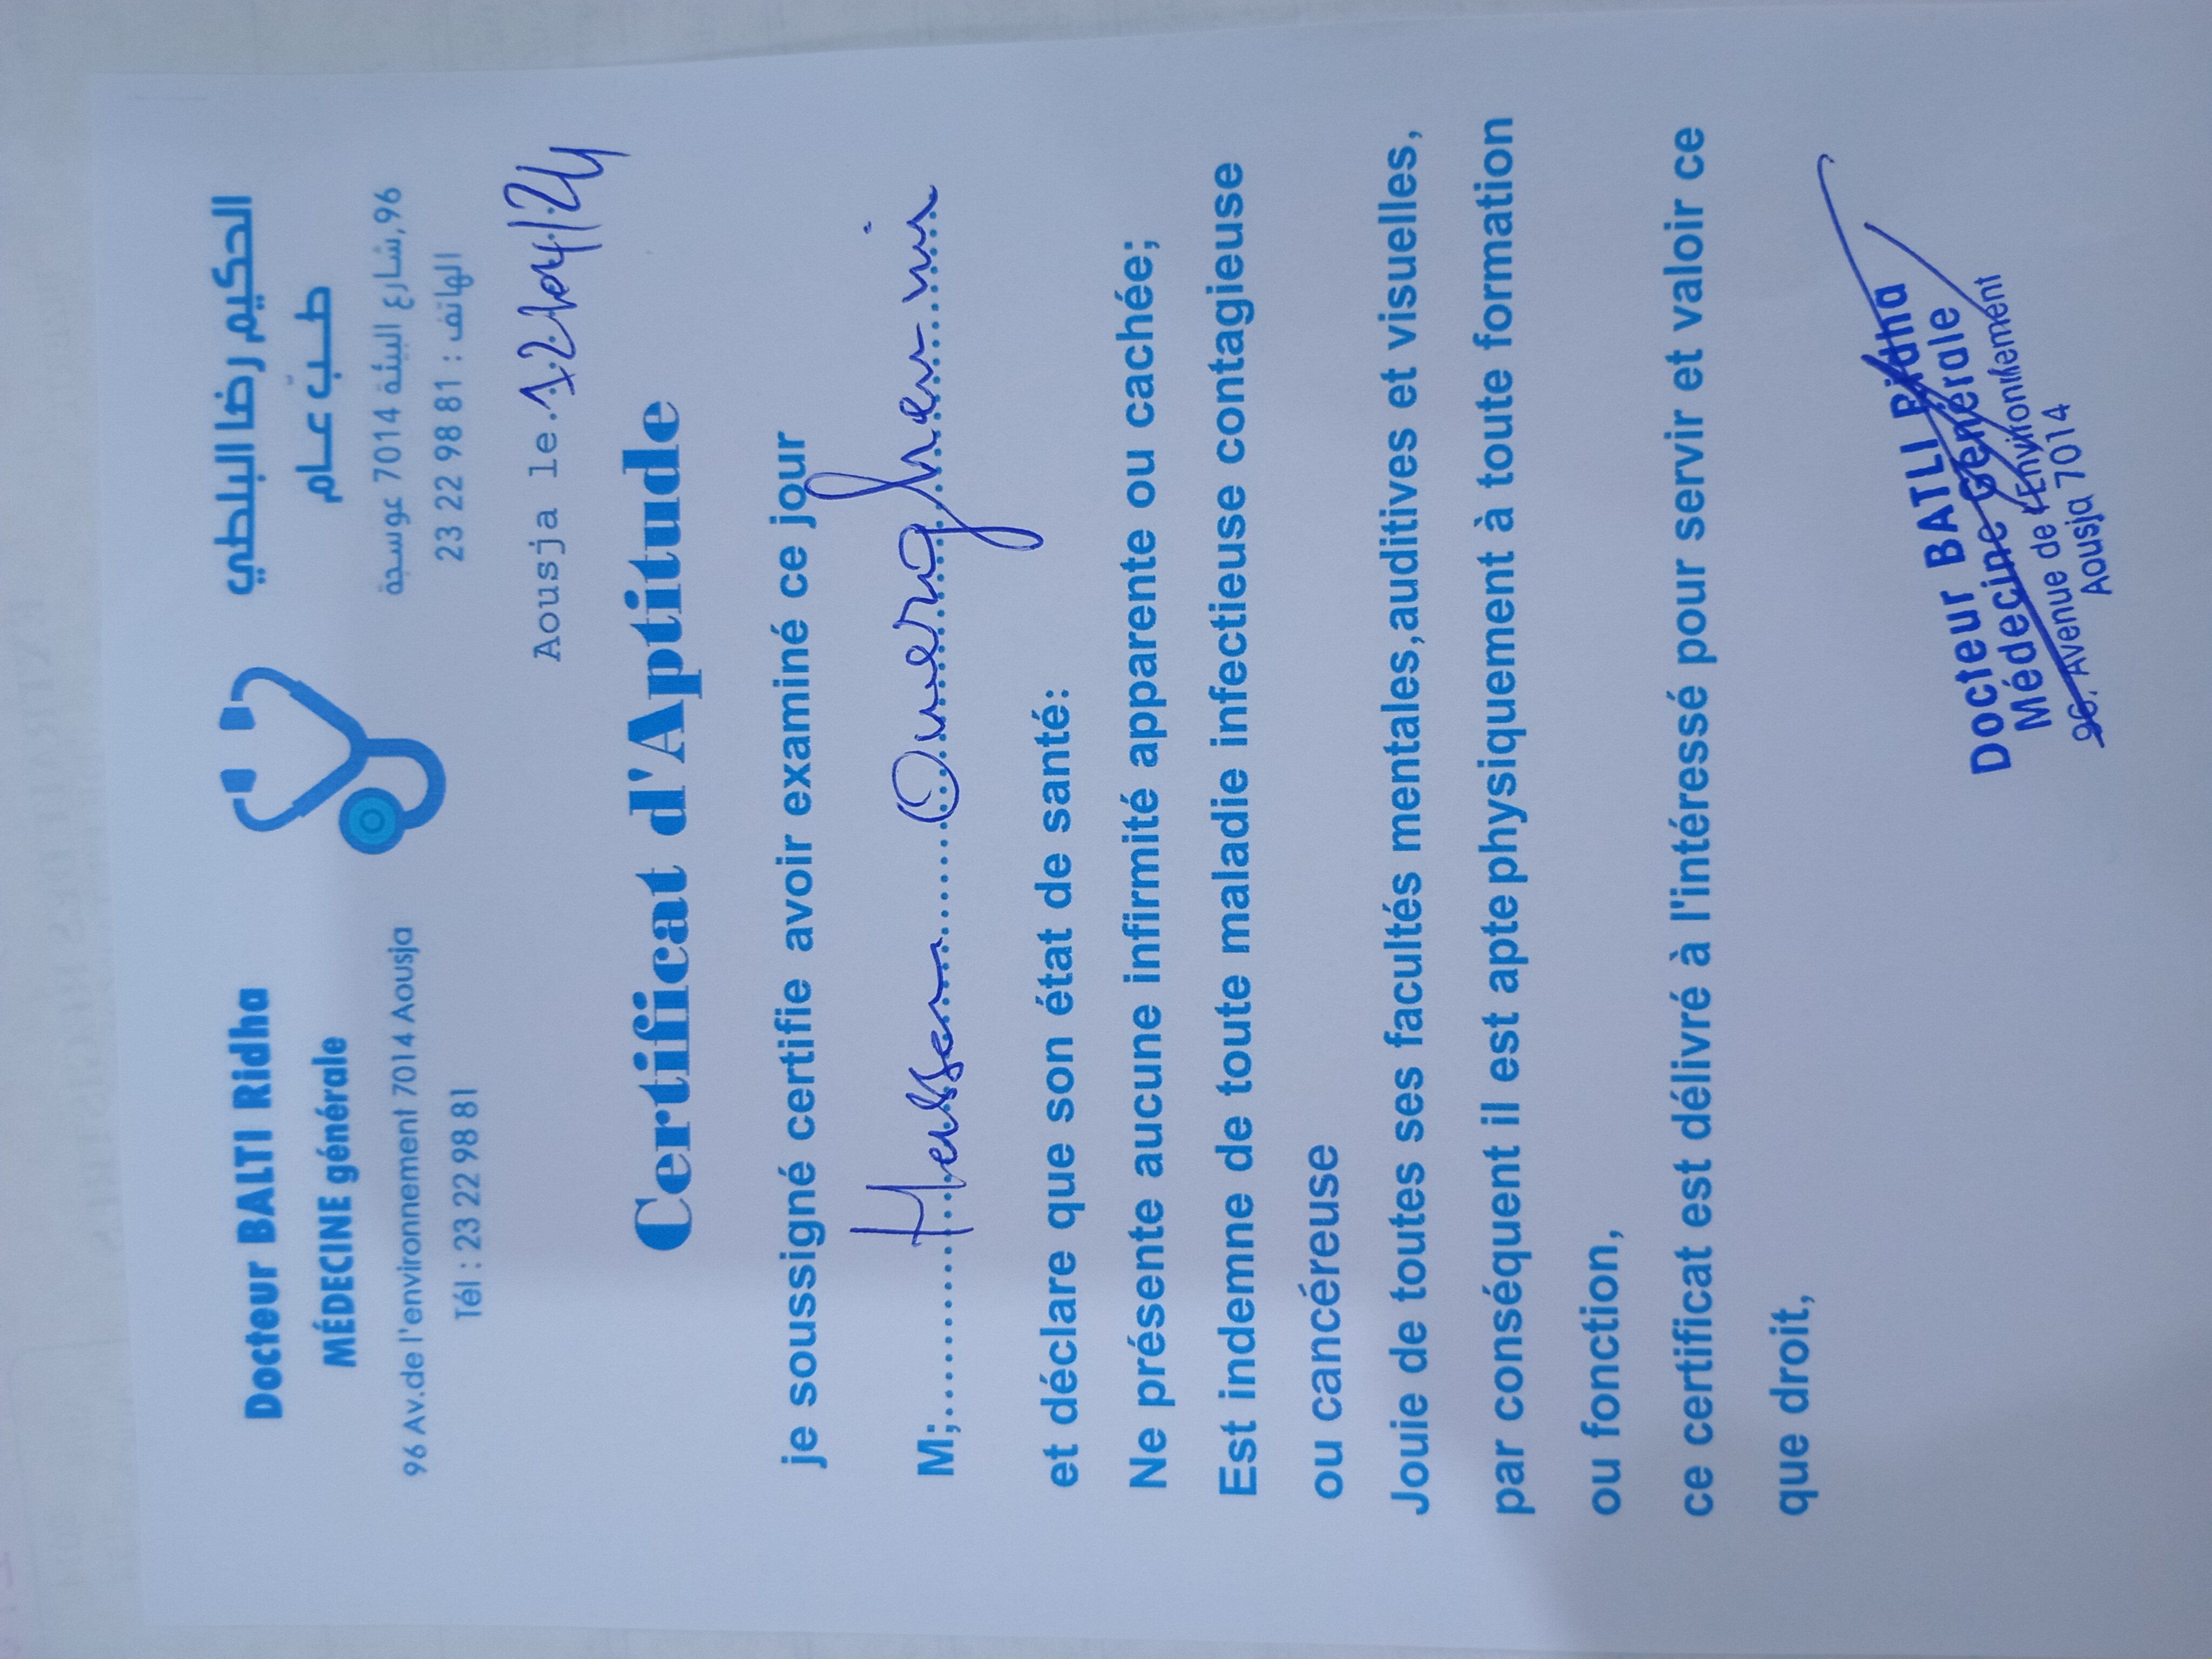 Docteur BALTI Ridha
MÉDECINE générale
96 Av.de l'environnement 7014 Aousja
Tél : 23 22 98 81
الحكيم رضا البلطي
طب عام
96,شارع البيئة 7014 عوسجة
الهاتف : 81 98 22 23
Aousja le.12/04/24
Certificat d'Aptitude
je soussigné certifie avoir examiné ce jour
M;
et déclare que son état de santé:
Ne présente aucune infirmité apparente ou cachée;
Est indemne de toute maladie infectieuse contagieuse
ou cancéreuse
Jouie de toutes ses facultés mentales,auditives et visuelles,
par conséquent il est apte physiquement à toute formation
ou fonction,
ce certificat est délivré à l'intéressé pour servir et valoir ce
que droit,
Docteur BATLI Ridha
Médecine Générale
96, Avenue de l'Environnement
Aousja 7014